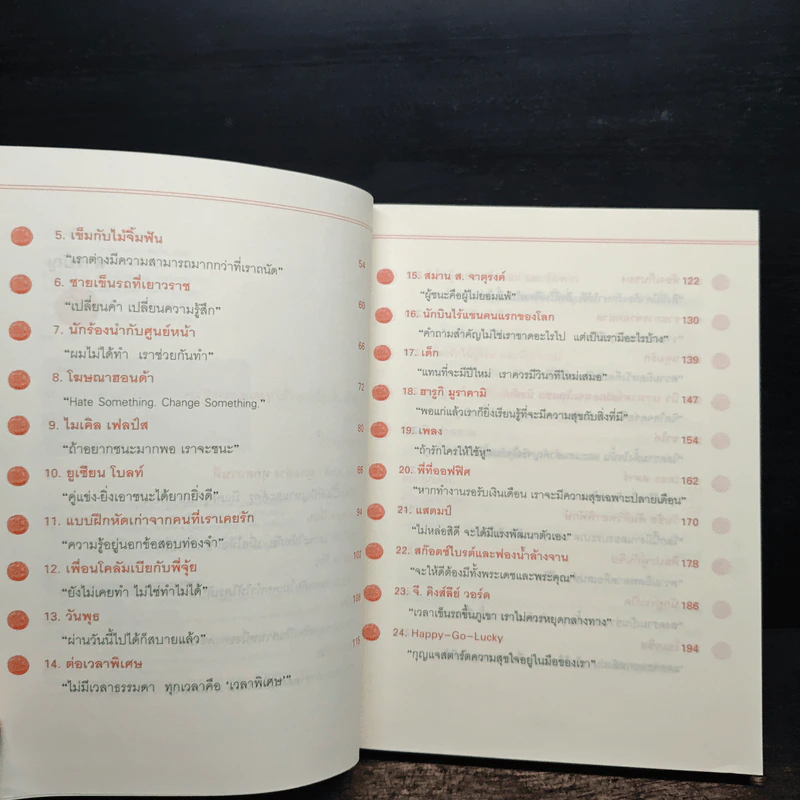 5. เข็มกับไม้จิ้มฟัน
“เราต่างมีความสามารถมากกว่าที่เราถนัด” 54
6. ชายเข็นรถที่เยาวราช
“เปลี่ยนคำ เปลี่ยนความรู้สึก” 60
7. นักร้องนำกับศูนย์หน้า
“ผมไม่ได้ทำ เราช่วยกันทำ” 66
8. โฆษณาฮอนด้า
“Hate Something. Change Something.” 72
9. ไมเคิล เฟลป์ส
“ถ้าอยากชนะมากพอ เราจะชนะ” 80
10. ยูเซียน โบลท์
“คู่แข่ง-ยิ่งเอาชนะได้ยากยิ่งดี” 86
11. แบบฝึกหัดเก่าจากคนที่เราเคยรัก
“ความรู้อยู่นอกข้อสอบท่องจำ” 94
12. เพื่อนโคลัมเบียกับพี่จุ้ย
“ยังไม่เคยทำ ไม่ใช่ทำไม่ได้” 102
13. วันพุธ
“ผ่านวันนี้ไปได้ก็สบายแล้ว” 109
14. ต่อเวลาพิเศษ
“ไม่มีเวลาธรรมดา ทุกเวลาคือ ‘เวลาพิเศษ’” 115
15. สมาน ส. จาตุรงค์ 122
“ผู้ชนะคือผู้ไม่ยอมแพ้”
16. นักบินไร้แขนคนแรกของโลก 130
“คำถามสำคัญไม่ใช่เราขาดอะไรไป แต่เป็นเรามีอะไรบ้าง”
17. เด็ก 139
“แทนที่จะมีปีใหม่ เราควรมีวินาทีใหม่เสมอ”
18. ฮารูกิ มูราคามิ 147
“พอแก่แล้วเราก็ยิ่งเรียนรู้ที่จะมีความสุขกับสิ่งที่มี”
19. เพลง 154
“ถ้ารักใครให้ใช้หู”
20. พี่ที่ออฟฟิศ 162
“หากทำงานรอรับเงินเดือน เราจะมีความสุขเฉพาะปลายเดือน”
21. แสตมป์ 170
“ไม่หล่อสิดี จะได้มีแรงพัฒนาตัวเอง”
22. สก๊อตช์ไบรต์และฟองน้ำล้างจาน 178
“จะให้ดีต้องมีทั้งพระเดชและพระคุณ”
23. จี. คิงส์ลีย์ วอร์ด 186
“เวลาเข็นรถขึ้นภูเขา เราไม่ควรหยุดกลางทาง”
24. Happy-Go-Lucky 194
“กุญแจสตาร์ตความสุขใจอยู่ในมือของเรา”